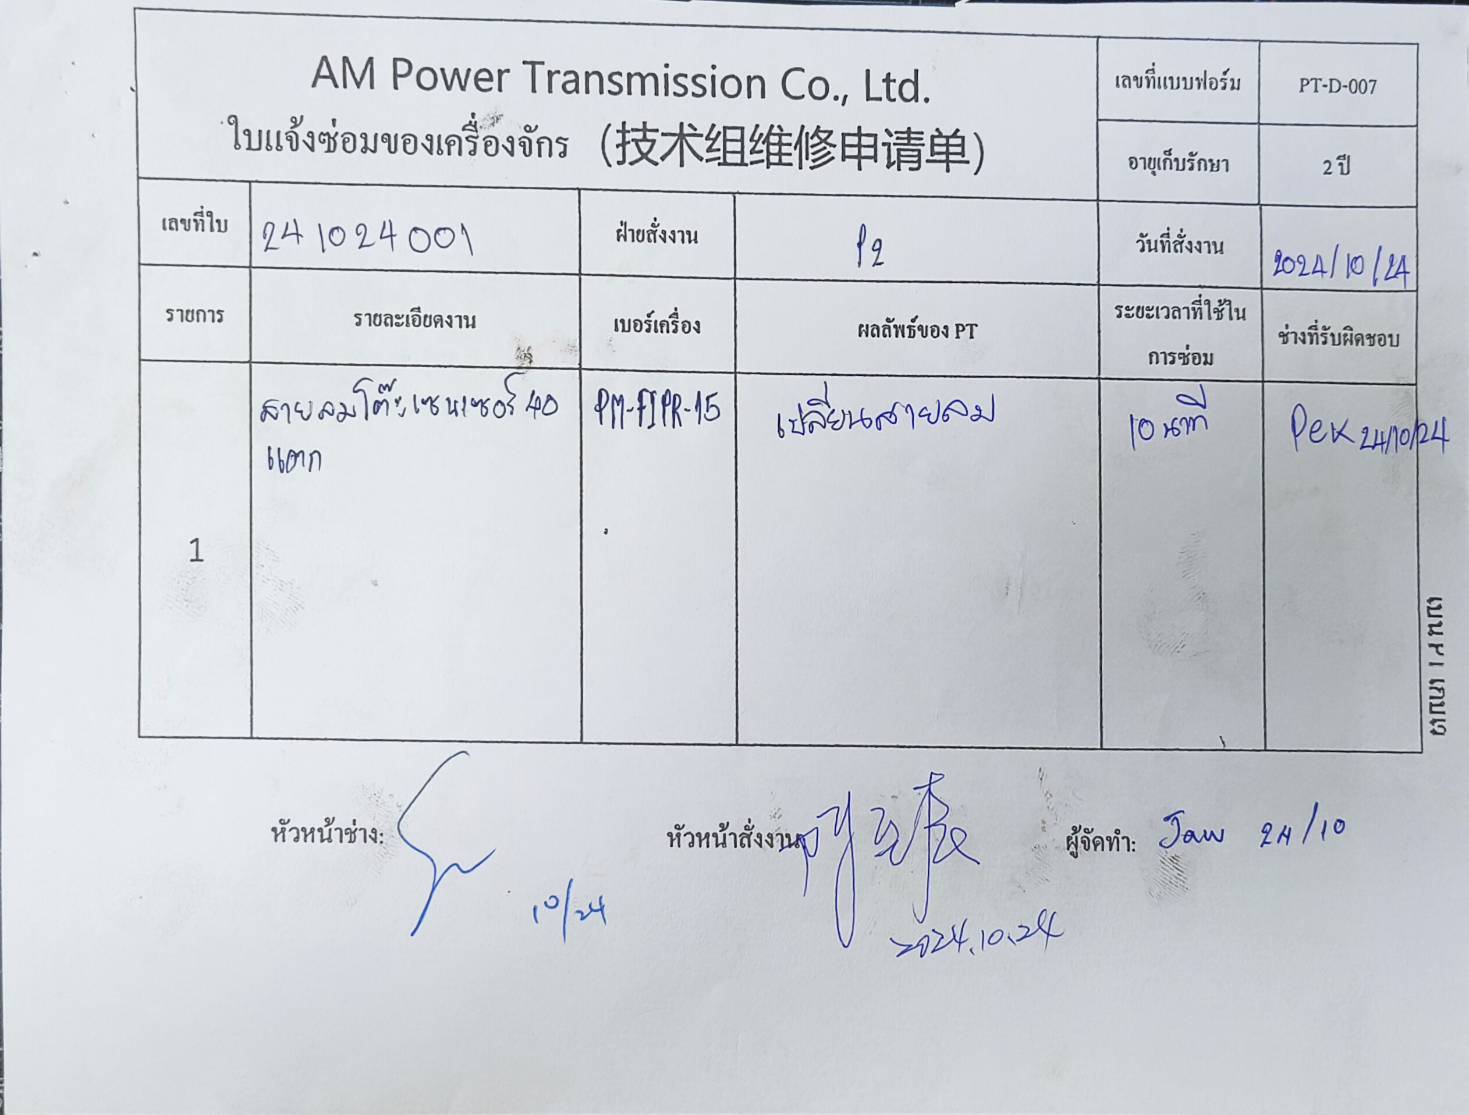 AM Power Transmission Co., Ltd.
ใบแจ้งซ่อมของเครื่องจักร (技术组维修申请单)
เลขที่แบบฟอร์ม PT-D-007
อายุเก็บรักษา 2 ปี
เลขที่ใบ 241024001 ฝ่ายสั่งงาน P2 วันที่สั่งงาน 2024/10/24
รายการ รายละเอียดงาน เบอร์เครื่อง ผลลัพธ์ของ PT ระยะเวลาที่ใช้ใน ช่างที่รับผิดชอบ
การซ่อม
1 สายลมโต๊ะเซนเซอร์ 40 PM-FIPR-15 เปลี่ยนสายลม 10 นาที Pek 24/10/24
แตก
หัวหน้าช่าง:
10/24
หัวหน้าสั่งงาน
2024.10.24
ผู้จัดทำ: Jaw 24/10